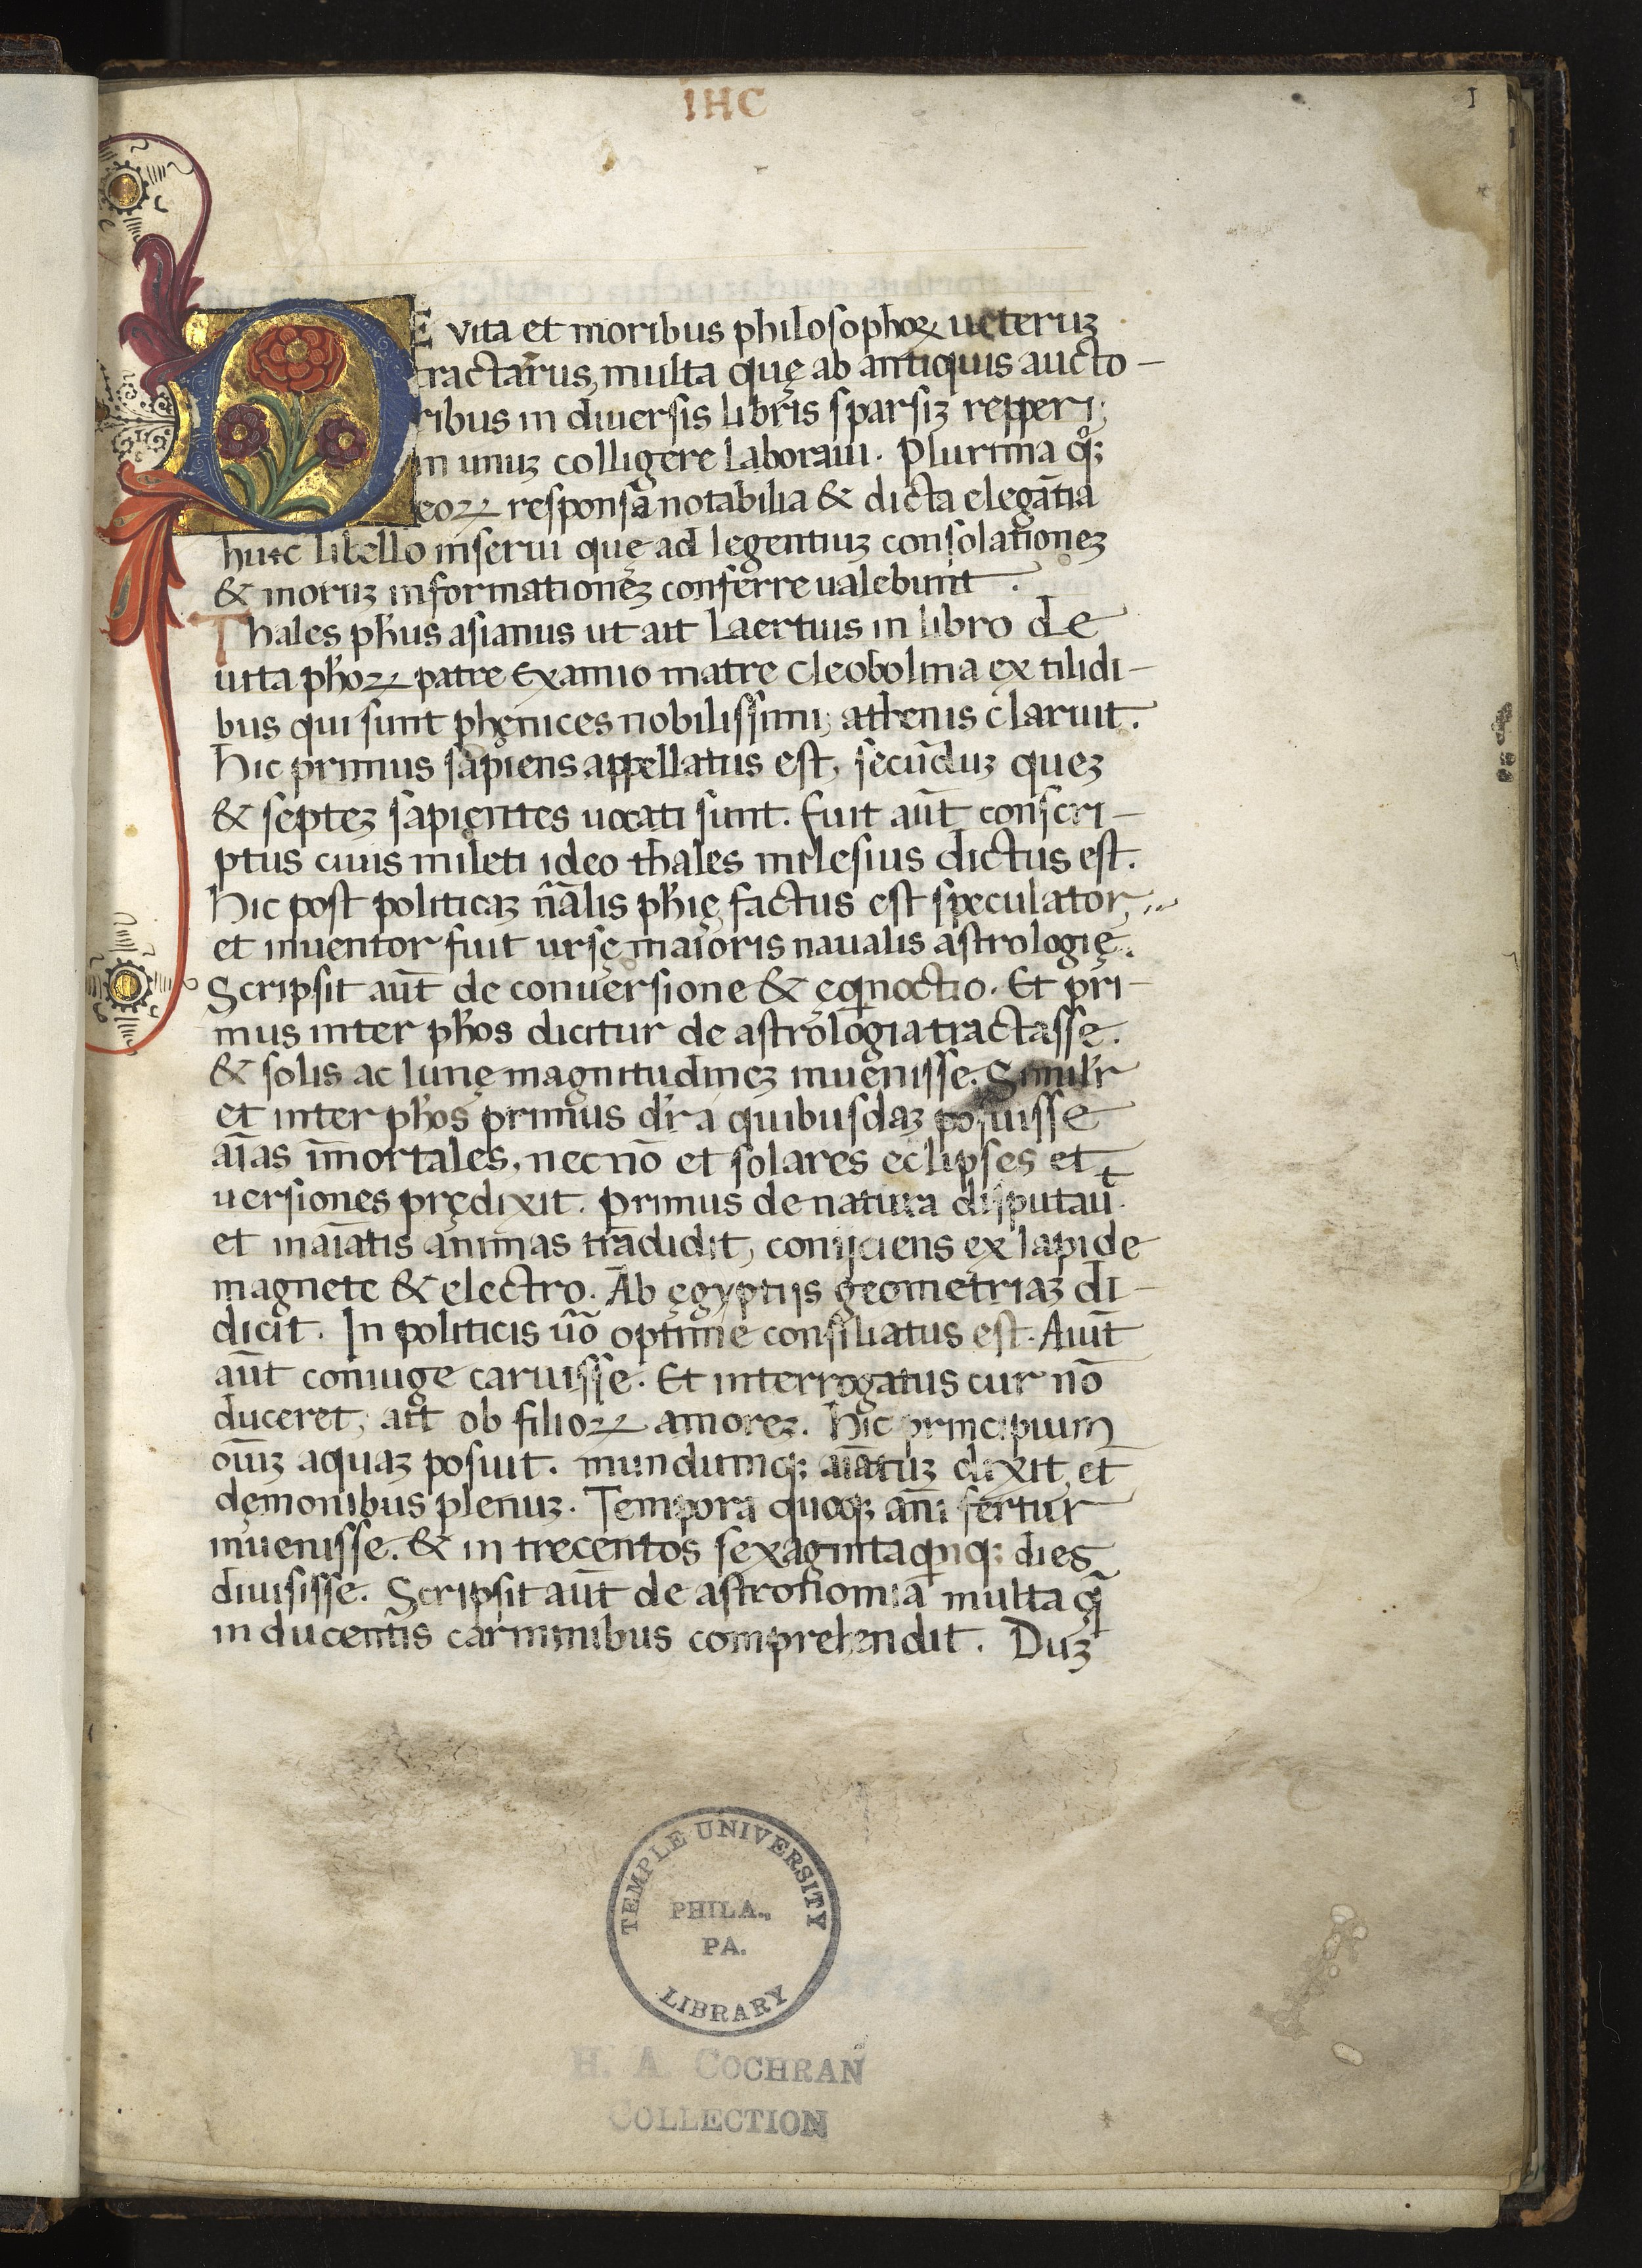 IHC
1
DE vita et moribus philosophoꝝ ueteruꝫ
tractarus, multa quę ab antiquis aucto-
ribus in diuersis libris sparsiꝫ repperi;
in unuꝫ colligere laboraui. Plurima qͦꝫ
eoꝝ responsa notabilia & dicta elegātia
huic libello inserui quę ad legentiuꝫ consolationeꝫ
& moruꝫ informationeꝫ conferre ualebunt.
Thales ph̄us asianus ut ait Laertius in libro de
uita ph̄oꝝ patre Examio matre Cleobolina ex tilidi-
bus qui sunt phęnices nobilissimi, athenis claruit.
Hic primus sapiens appellatus est, secūduꝫ queꝫ
& septeꝫ sapientes uocati sunt. fuit aūt conscri-
ptus ciuis mileti ideo thales milesius dictus est.
Hic post politicaꝫ n̄alis ph̄ię factus est speculator,
et inuentor fuit ursę maioris naualis astrologię.
Scripsit aūt de conuersione & ęqͥnoctio. Et pri-
mus inter ph̄os dicitur de astrologia tractasse.
& solis ac lunę magnitudineꝫ inuenisse. Simil̄r
et inter ph̄os primus dr̄ a quibusdaꝫ posuisse
aīas īmortales, nec nō et solares eclipses et
uersiones prędixit. Primus de natura disputauͭ.
et inaīatis animas tradidit, conijciens ex lapide
magnete & electro. Ab ęgyptijs geometriaꝫ di-
dicit. In politicis u̅o optime consiliatus est. Aiūt
aūt coniuge caruisse. Et interrogatus cur nō
duceret, ait ob filioꝝ amoreꝫ. Hic principium
oīuꝫ aquaꝫ posuit. mundumqꝫ aīatuꝫ dixit, et
dęmonibus plenuꝫ. Tempora quoqꝫ anni fertur
inuenisse. & in trecentos sexagintaqͥnqꝫ dies
diuisisse. Scripsit aūt de astronomia multa q̄
in ducentis carminibus comprehendit. Duꝫ
TEMPLE UNIVERSITY
PHILA.,
PA.
LIBRARY
H. A. COCHRAN
COLLECTION